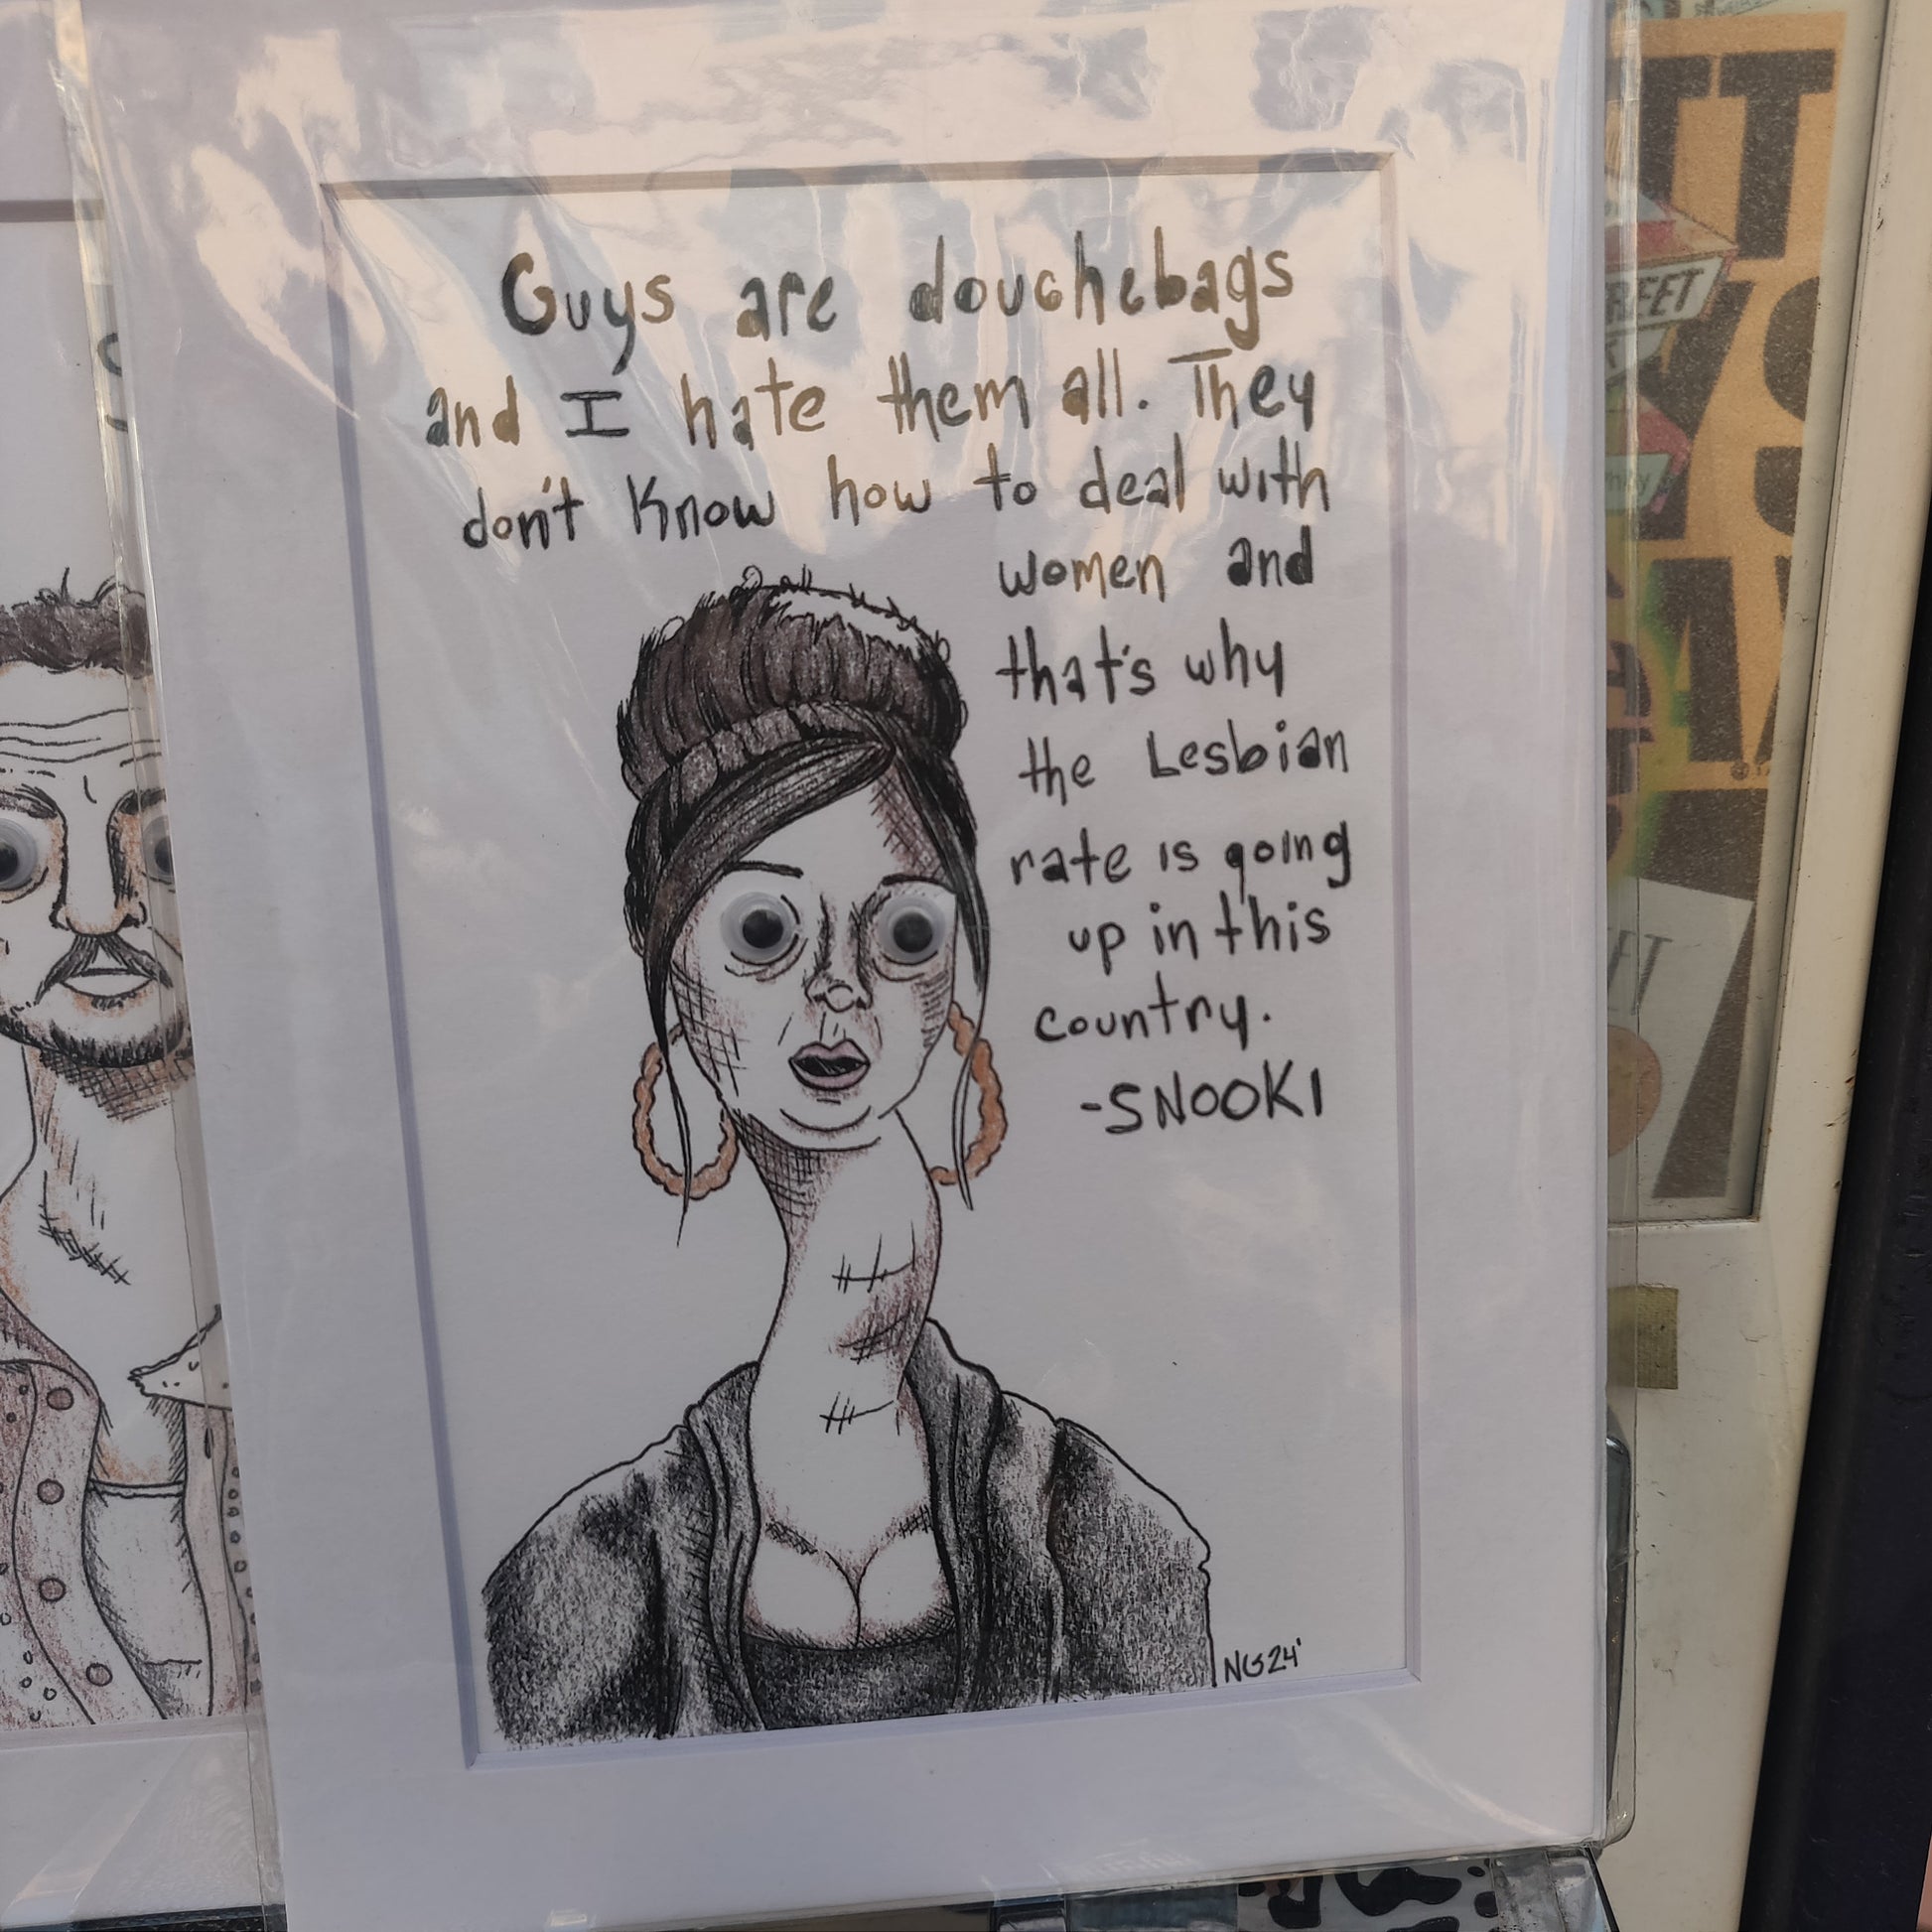 Guys are douchebags
and I hate them all. They
don't know how to deal with
women and
that's why
the Lesbian
rate is going
up in this
country.
-SNOOKI
NG24'